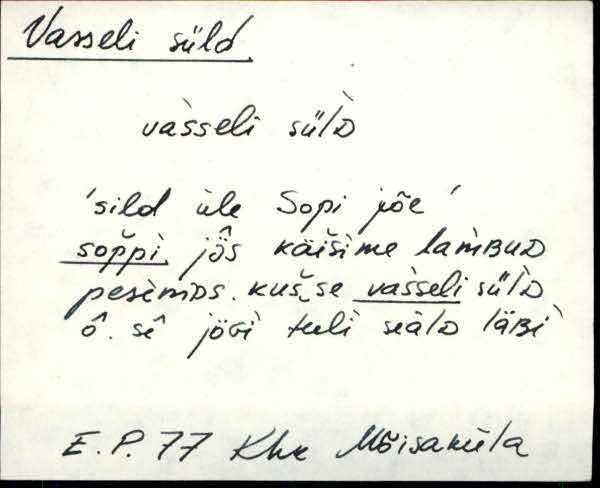 Vasseli süld
vàsseli sülD
'sild üle Sopi jõe'
soppi jõ̂s käišime lamBuD
pesemDs. kuš‿se vasseli sülD
ô. sê̂ jöGi tuli seàlD läBi
E.P. 77 Khk Mõisaküla